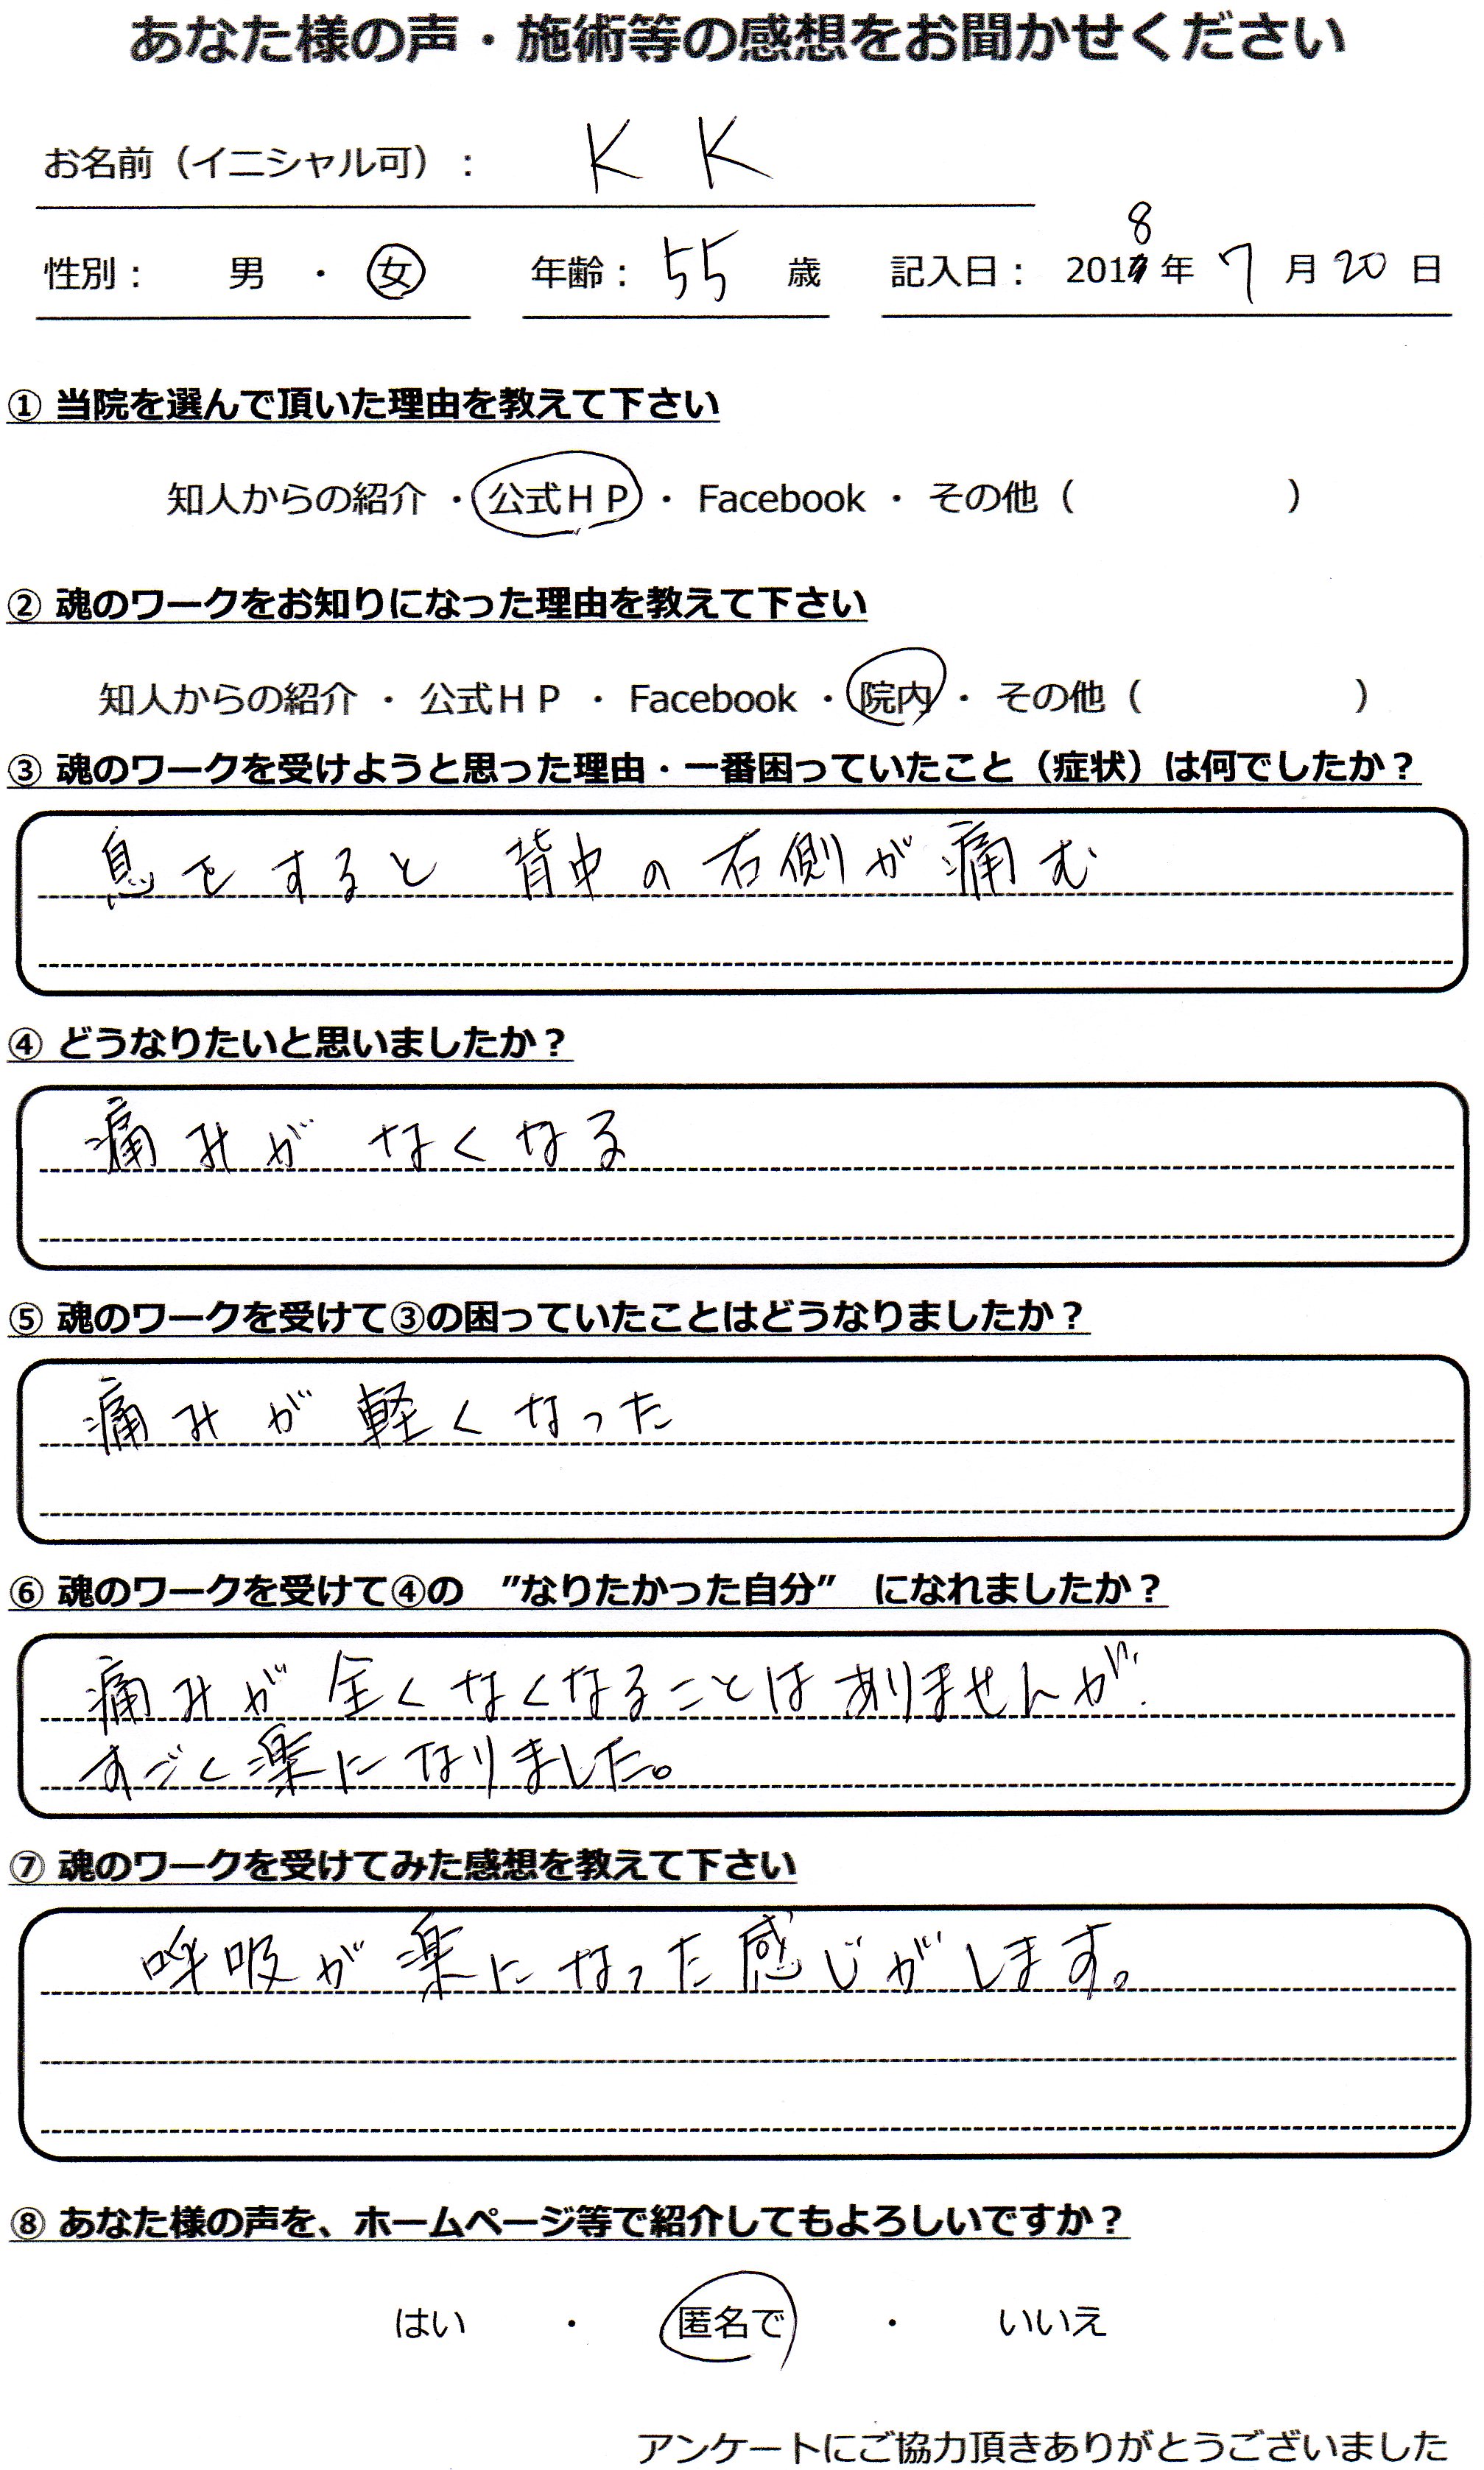 あなた様の声・施術等の感想をお聞かせください
お名前（イニシャル可）： K K
性別： 男 ・ 女 年齢：55 歳 記入日： 2018年 7 月 20 日
① 当院を選んで頂いた理由を教えて下さい
知人からの紹介 ・ 公式ＨＰ ・ Facebook ・ その他（ ）
② 魂のワークをお知りになった理由を教えて下さい
知人からの紹介 ・ 公式ＨＰ ・ Facebook ・ 院内 ・ その他（ ）
③ 魂のワークを受けようと思った理由・一番困っていたこと（症状）は何でしたか？
息をすると 背中の右側が痛む
④ どうなりたいと思いましたか？
痛みが なくなる
⑤ 魂のワークを受けて③の困っていたことはどうなりましたか？
痛みが軽くなった
⑥ 魂のワークを受けて④の ”なりたかった自分” になれましたか？
痛みが全くなくなることはありませんが、
すごく楽になりました。
⑦ 魂のワークを受けてみた感想を教えて下さい
呼吸が楽になった感じがします。
⑧ あなた様の声を、ホームページ等で紹介してもよろしいですか？
はい ・ 匿名で ・ いいえ
アンケートにご協力頂きありがとうございました